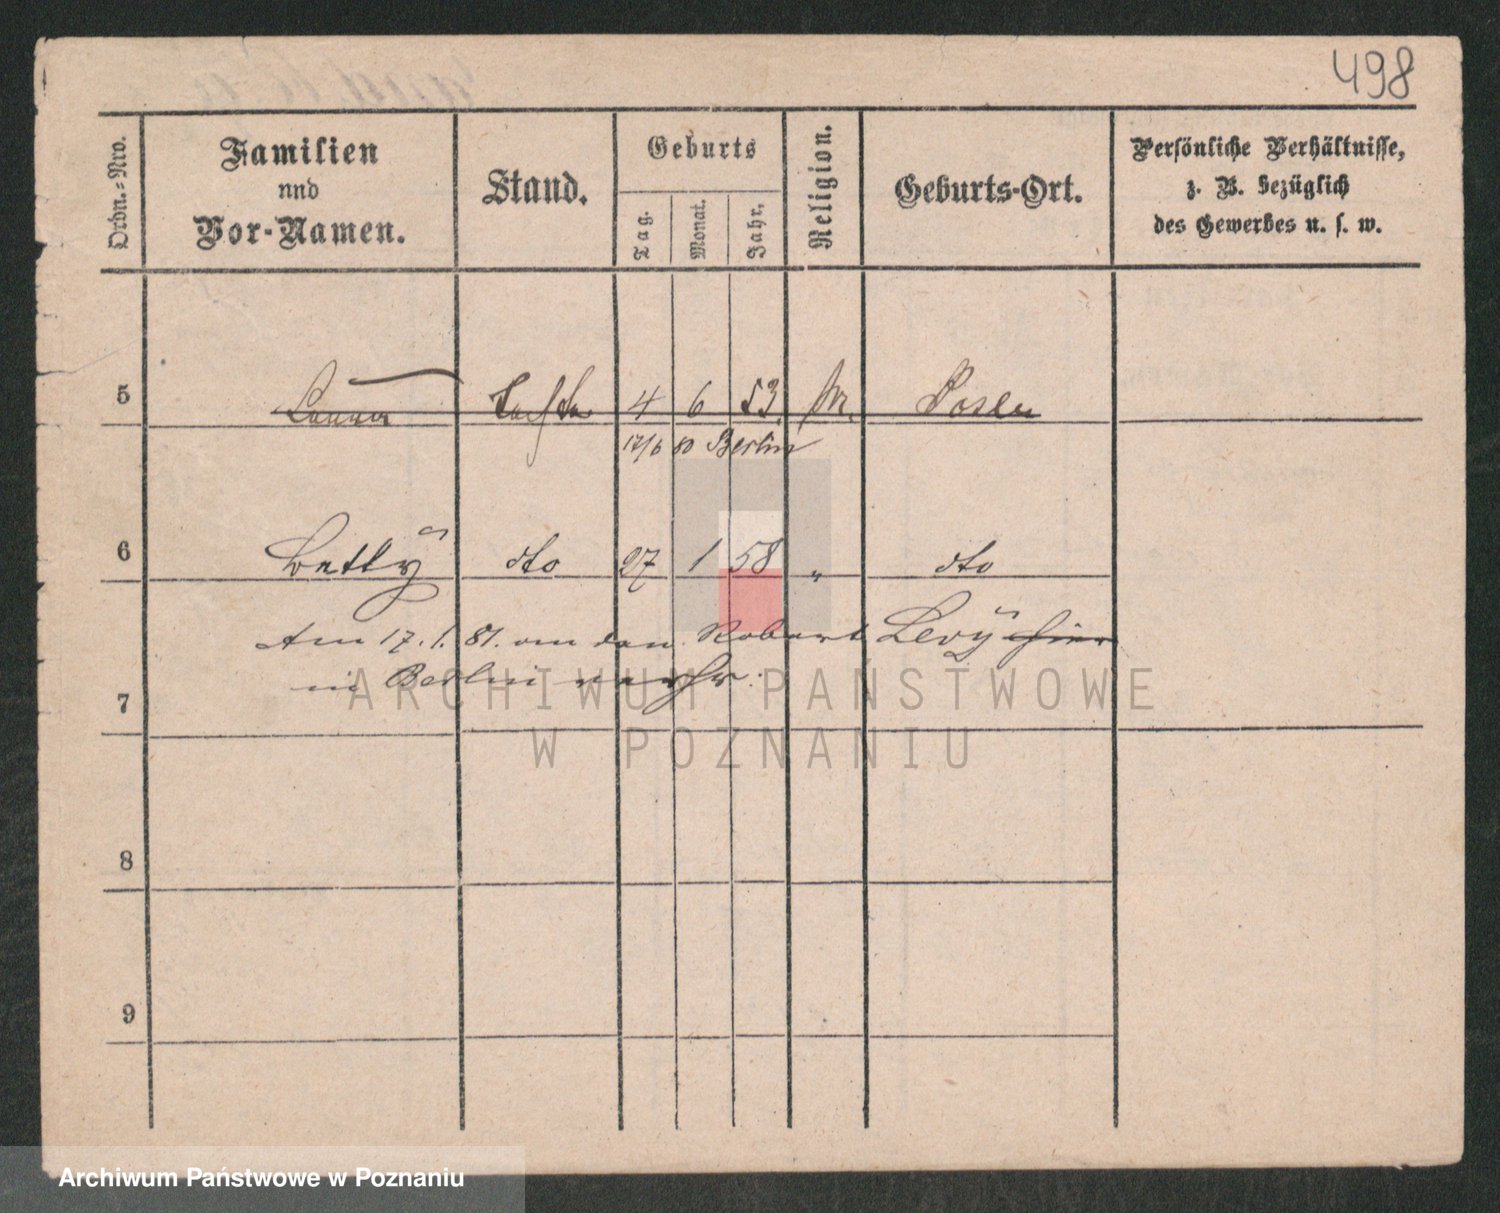 498
Ordn.=Nro.
Familien
und
Vor-Namen.
Stand.
Geburts
Tag.
Monat.
Jahr.
Religion.
Geburts-Ort.
Persönliche Verhältnisse,
z. B. bezüglich
des Gewerbes u. s. w.
5 Laura 4 6 53. M. Posen
17/6 80 Berlin
6 Betty dto 27 1 58 " dto
Am 17. 1. 81. an den Robert Levy hier
in Berlin verh.
7
8
9
ARCHIWUM PAŃSTWOWE
W POZNANIU
Archiwum Państwowe w Poznaniu